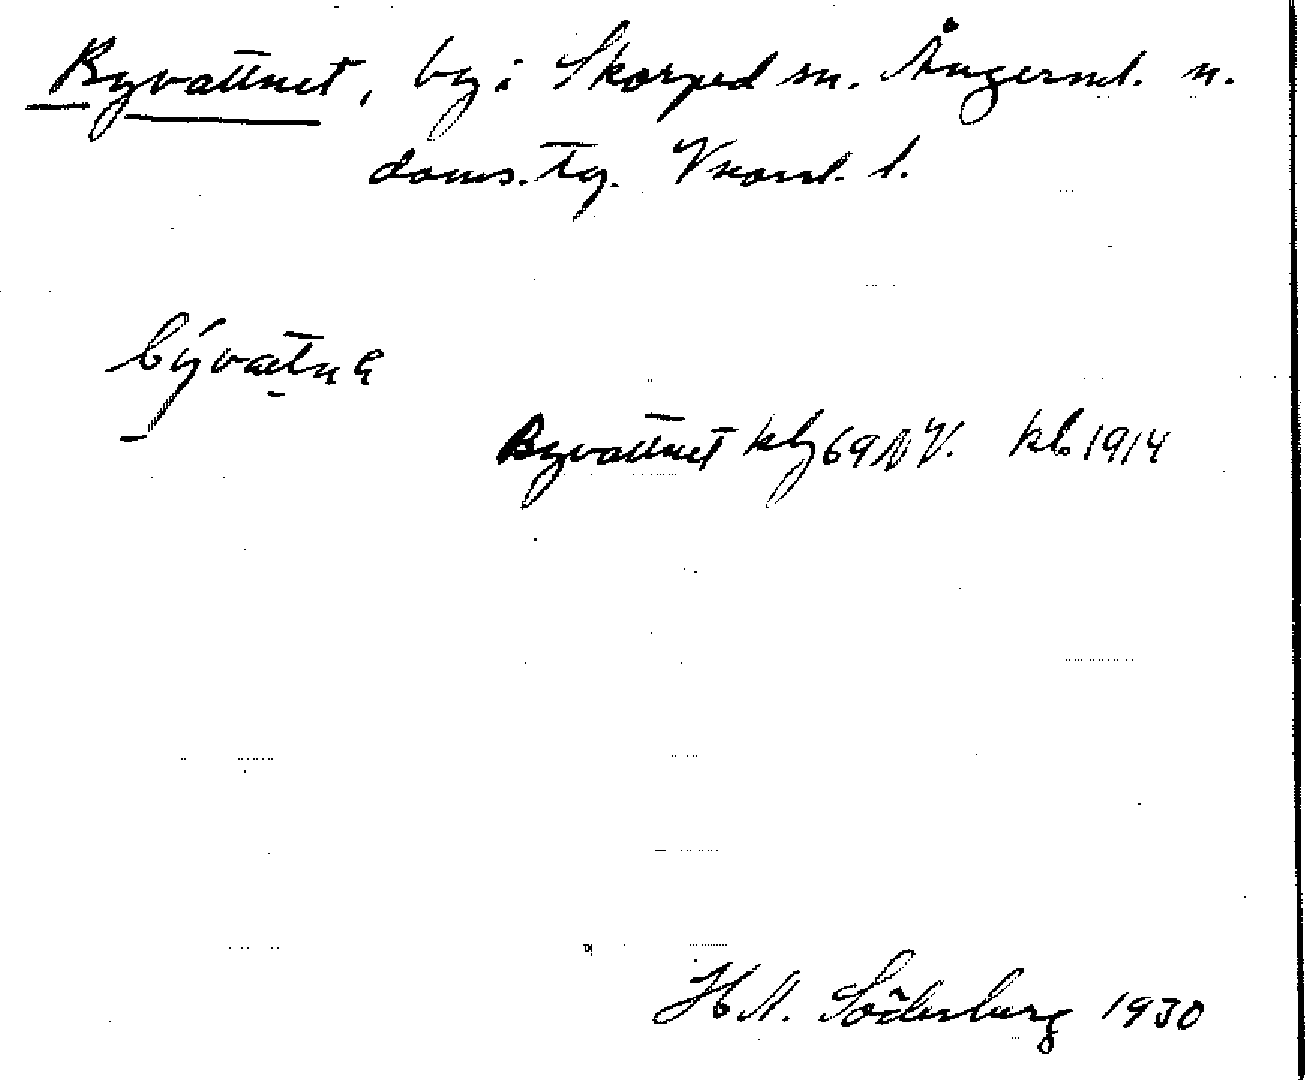 Byvattnet, by i Skorped sn. Ångerml. n.
doms. tg. Vnorrl. l.
bývatnɐ
Byvattnet kbg 69 NV. kb 1914
H A. Söderberg 1930